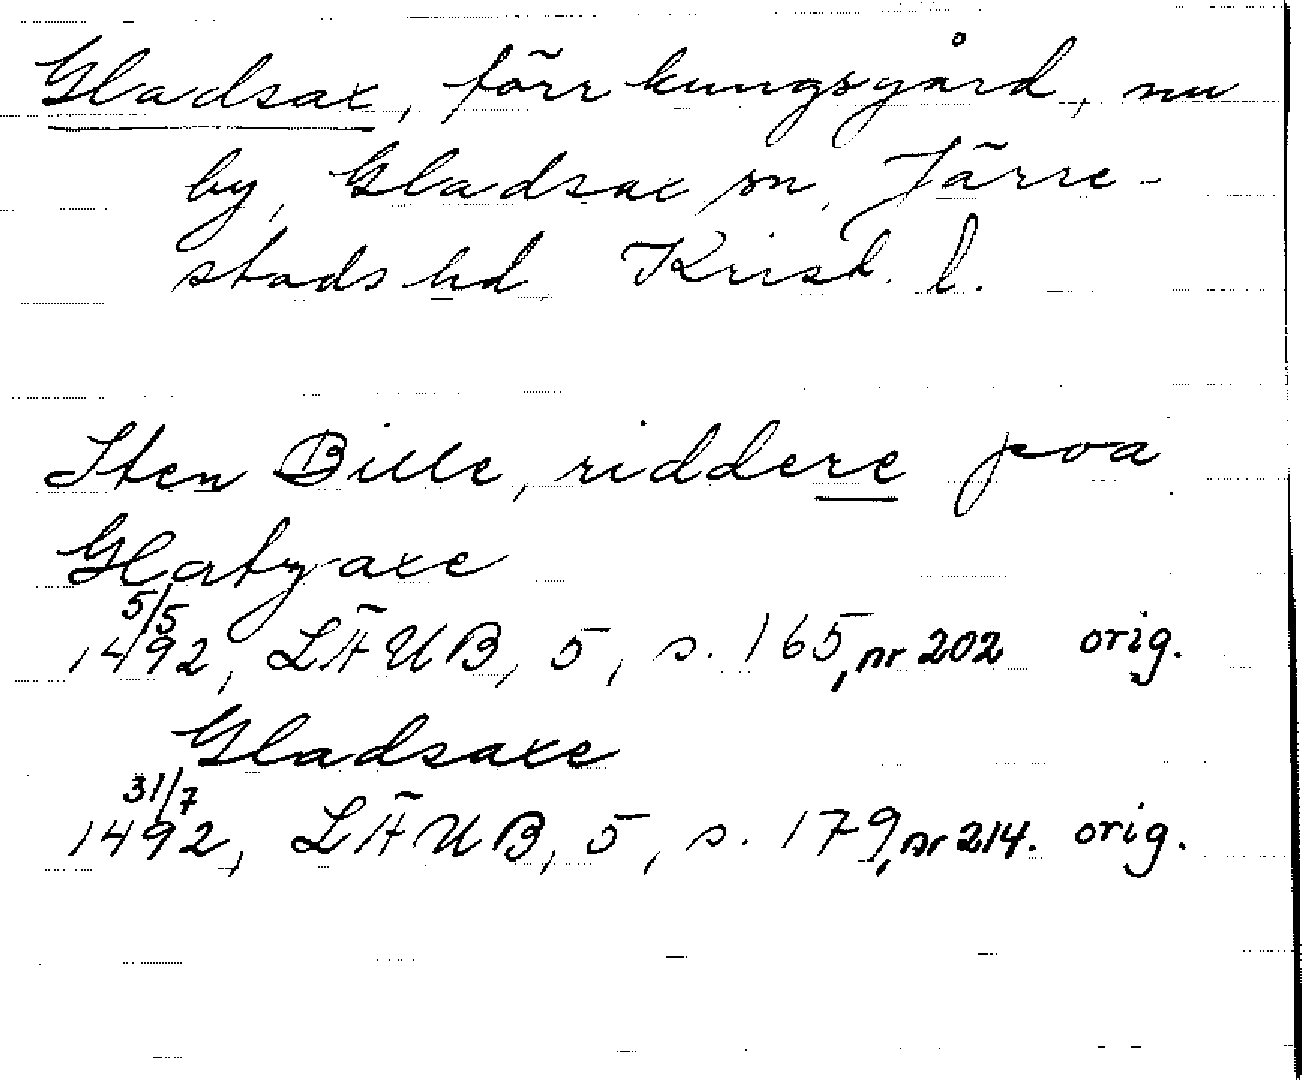 Gladsax, förr kungsgård, nu
by, Gladsax sn, Järre-
stads hd Krist. l.
Sten Bille, riddere poa
1492 5/5, LÄUB, 5, s. 165, nr 202 orig.
Gladsaxe
1492 31/7, LÄUB, 5, s. 179, nr 214. orig.